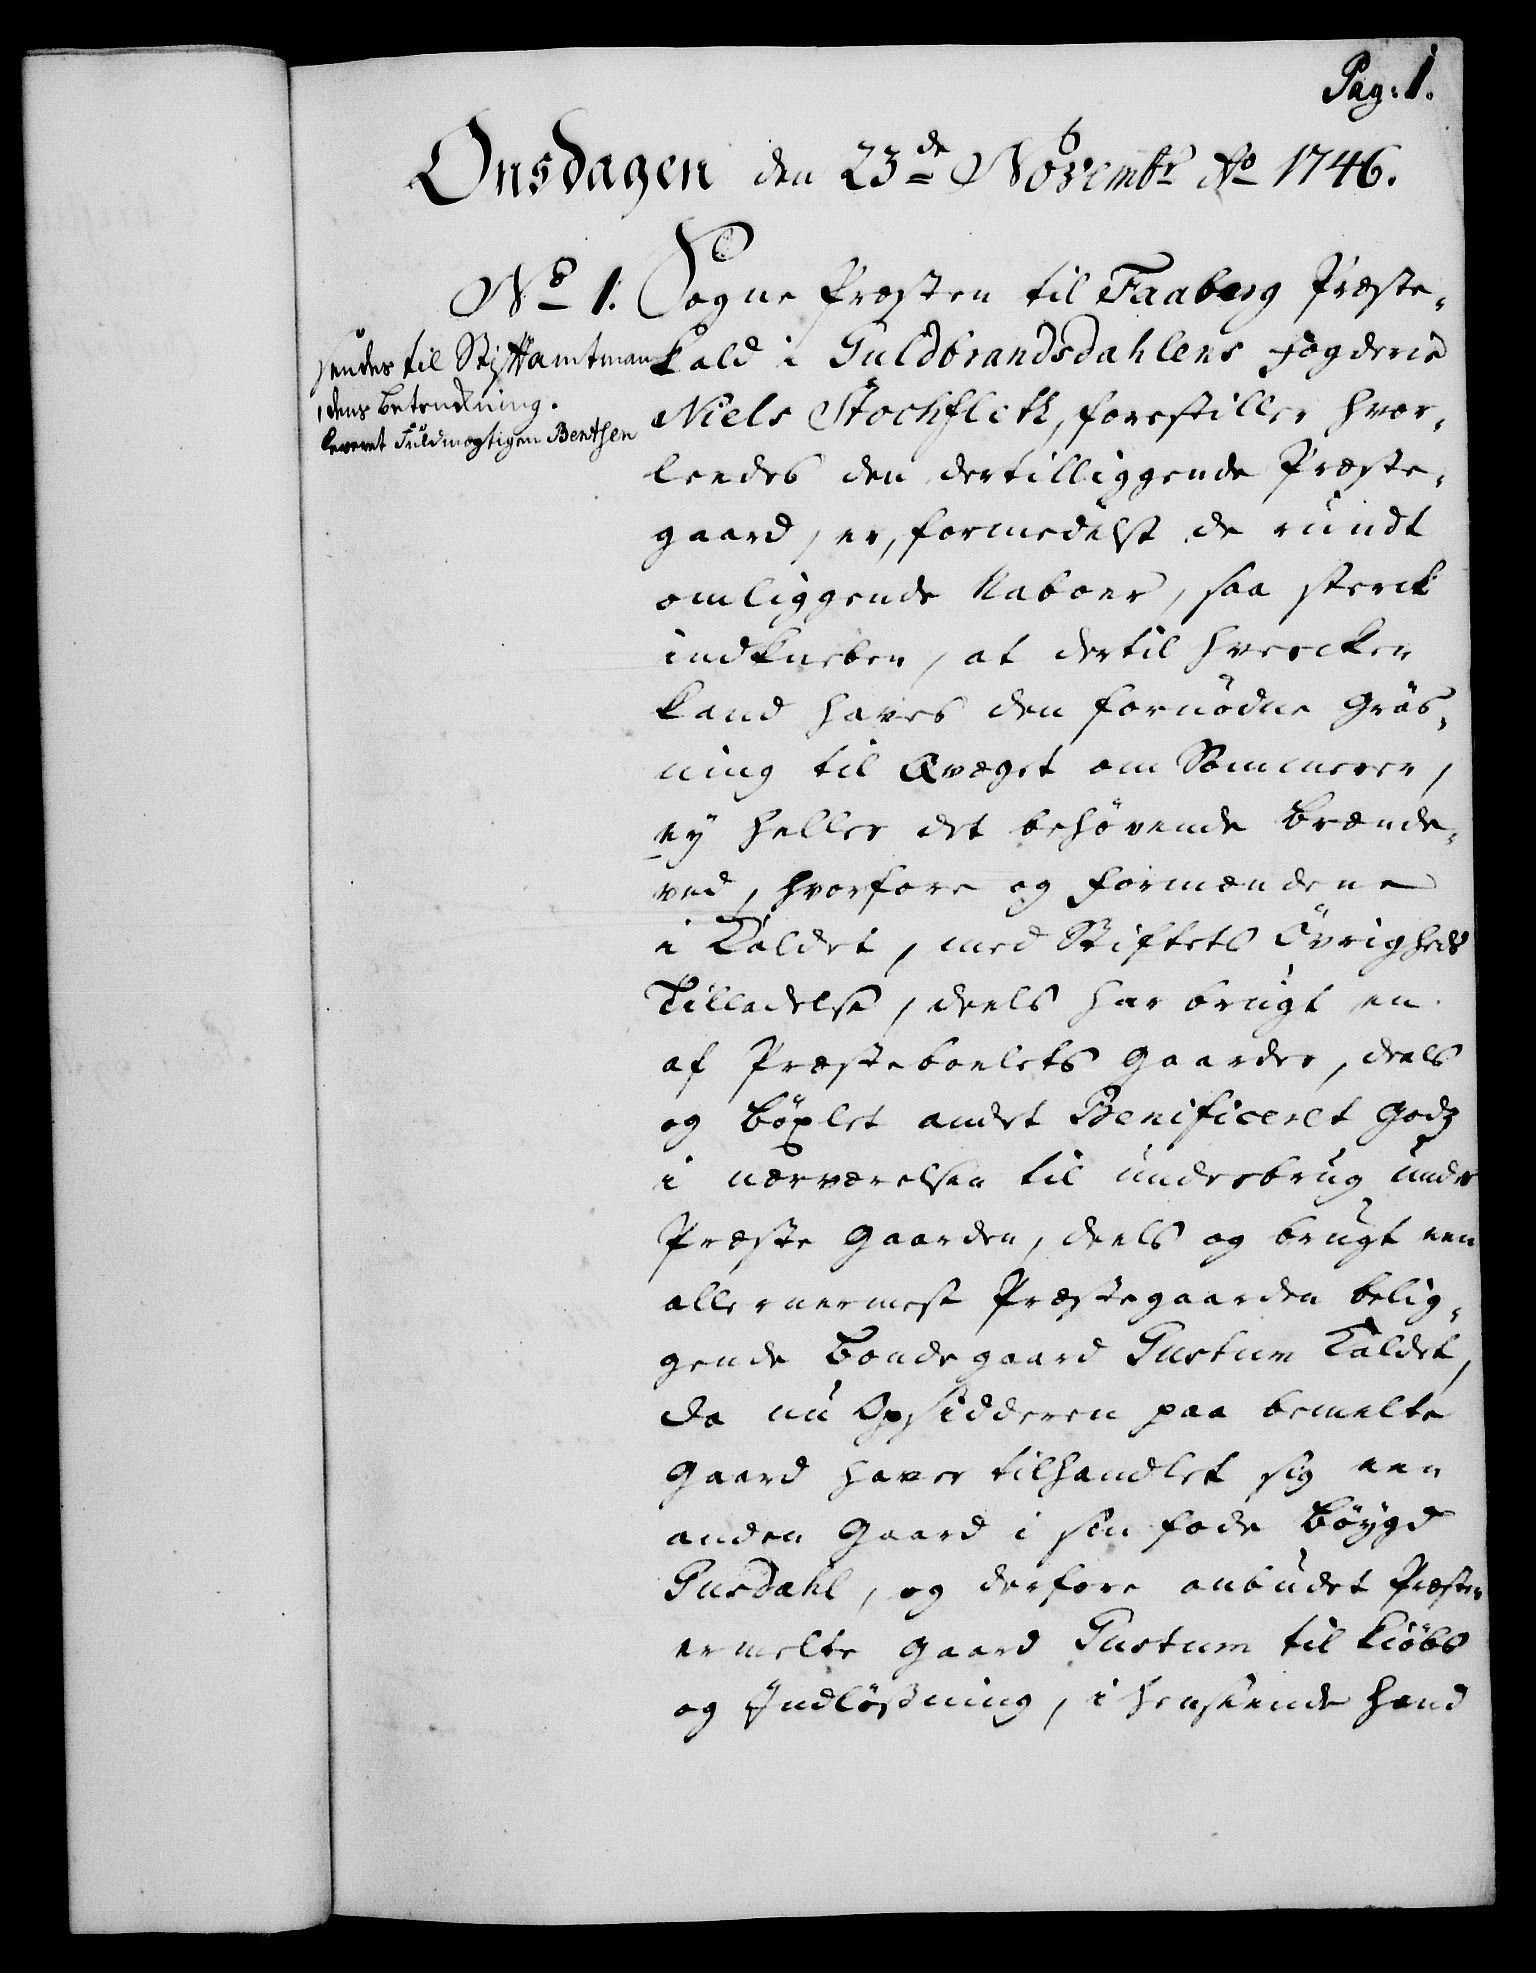 Pag: 1.
Onsdagen den 23de Novembr Ao 1746.
No 1. Sogne Præsten til Faaberg Præste-
kald i Guldbrandsdahlens Fogderie
Niels Stochfleth, forestiller hvor-
ledes den dertilliggende Præste-
gaard, er, formedelst de rundt
omliggende Naboer, saa sterck
indkneben, at dertil hvercken
kand haves den fornödne Gräs-
ning til Qvæget om Sommeren,
ey heller det behövende Brænde-
ved, hvorfore og Formændene
i Kaldet, med Stiftets Övrigheds
Tilladelse, deels har brugt en
af Præstebolets Gaarder, deels
og böxlet andet Benificeret Godz
i nærværelsen til underbrug under
Præste Gaarden, deels og brugt een
allernermest Præstegaarden belig-
gende Bondegaard Gustum Kaldet,
da nu Opsidderen paa bemelte
Gaard haver tilhandlet sig een
anden Gaard i sin föde Böygd
Gusdahl, og derfore anbudet Præsten
ermelte Gaard Gustum til Kiöbs
og Indlösning, i henseende hand
sendes til Stiftamtman
dens Betenckning.
leveret Fuldmegtigen Bentsen